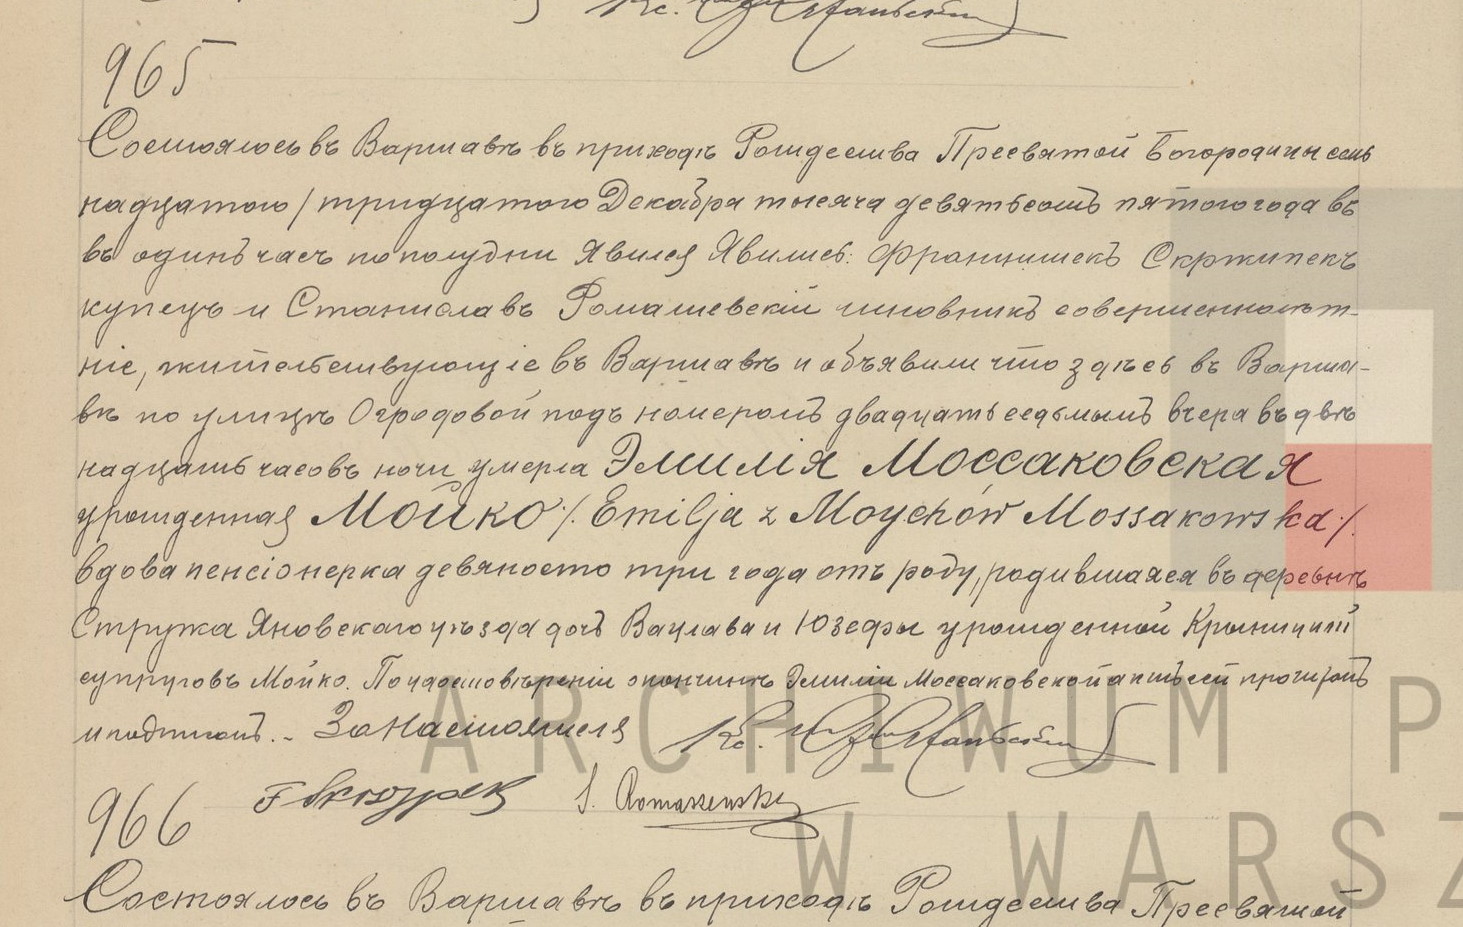 965
Состоялось въ Варшавѣ въ приходѣ Рождества Пресвятой Богородицы сем
надцатого / тридцатого Декабря тысяча девятьсотъ пятого года въ
въ одинъ часъ по полудни Явился Явились: Францишекъ Скржипекъ
купецъ и Станиславъ Ромашевскій чиновникъ совершеннолѣт-
ніе, жительствующіе въ Варшавѣ и объявили что здѣсь въ Варша-
вѣ по улицѣ Огродовой подъ номеромъ двадцать седьмымъ вчера въ двѣ
надцать часовъ ночи умерла Эмилія Моссаковская
урожденная Мойко /. Emilja z Moychów Mossakowska /.
вдова пенсіонерка девяносто три года отъ роду, родившаяся въ деревнѣ
Стружа Яновскаго уѣзда дочь Вацлава и Юзефы урожденной
супруговъ Мойко. По удостовѣреніи о кончинѣ Эмиліи Моссаковской актъ сей прочитанъ
и подписанъ. - За Настоятеля Кс.
F Skrzypek S. Romaszewski
966
Состоялось въ Варшавѣ въ приходѣ Рождества Пресвятой
ARCHIWUM P
W WARSZ